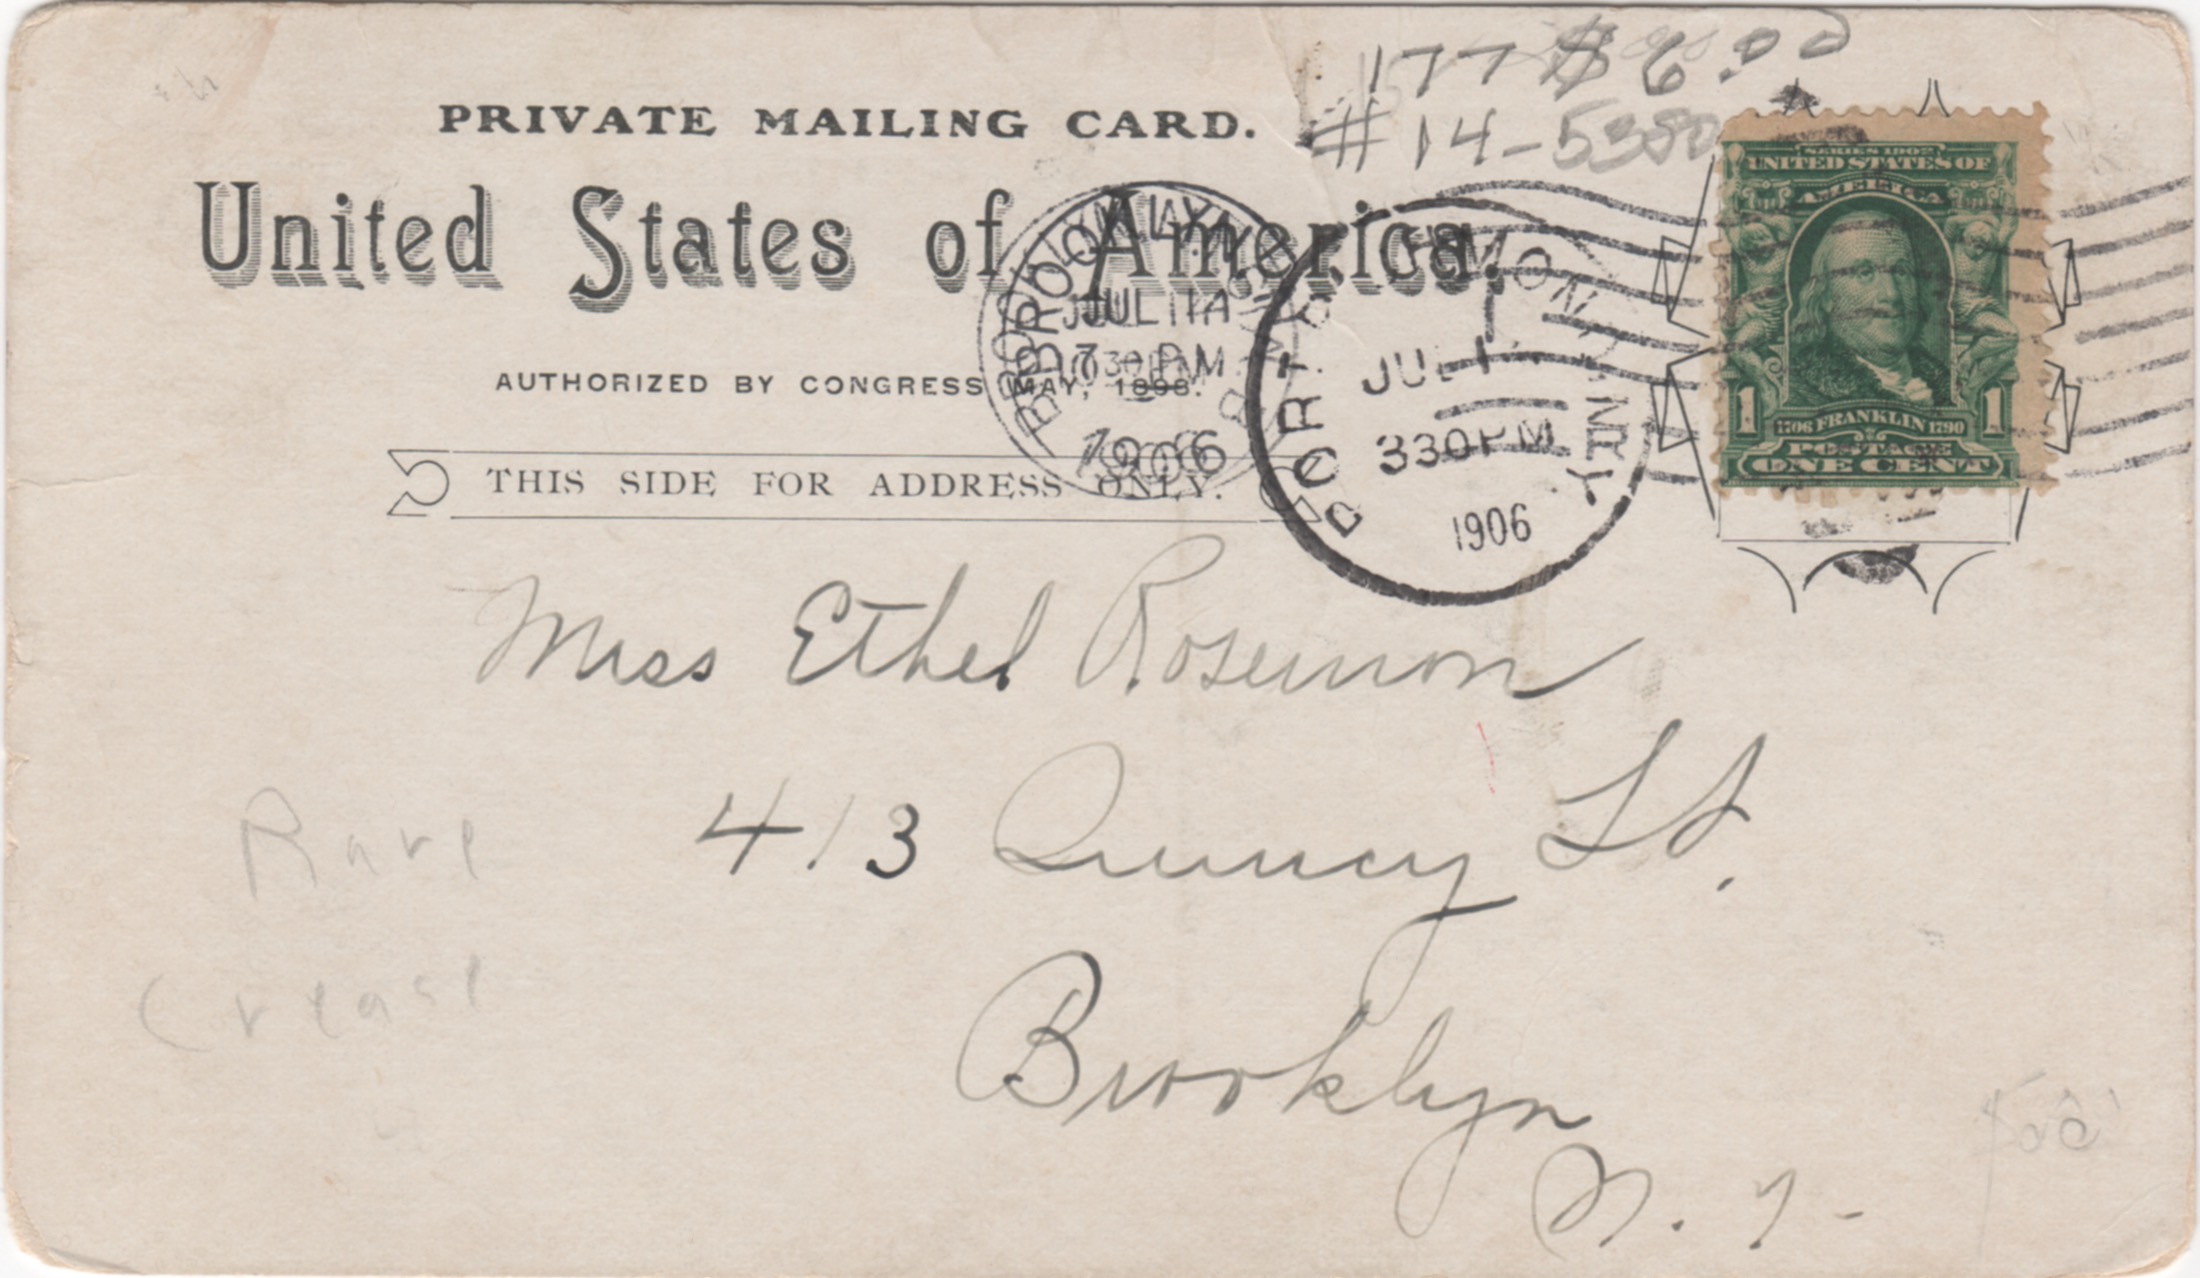 177 $6.00
PRIVATE MAILING CARD.
#14-5380
United States of America.
SERIES 1902
UNITED STATES OF
AMERICA
JUL 11A
730 PM
AUTHORIZED BY CONGRESS MAY, 1898.
1906
PORT RICHMOND
JUL 1
330PM
N.Y.
1906
1 1706 FRANKLIN 1790 1
POSTAGE
ONE CENT
THIS SIDE FOR ADDRESS ONLY.
Miss Ethel Rosemon
413 Quincy St.
Rare
Crease
Brooklyn
N. Y.